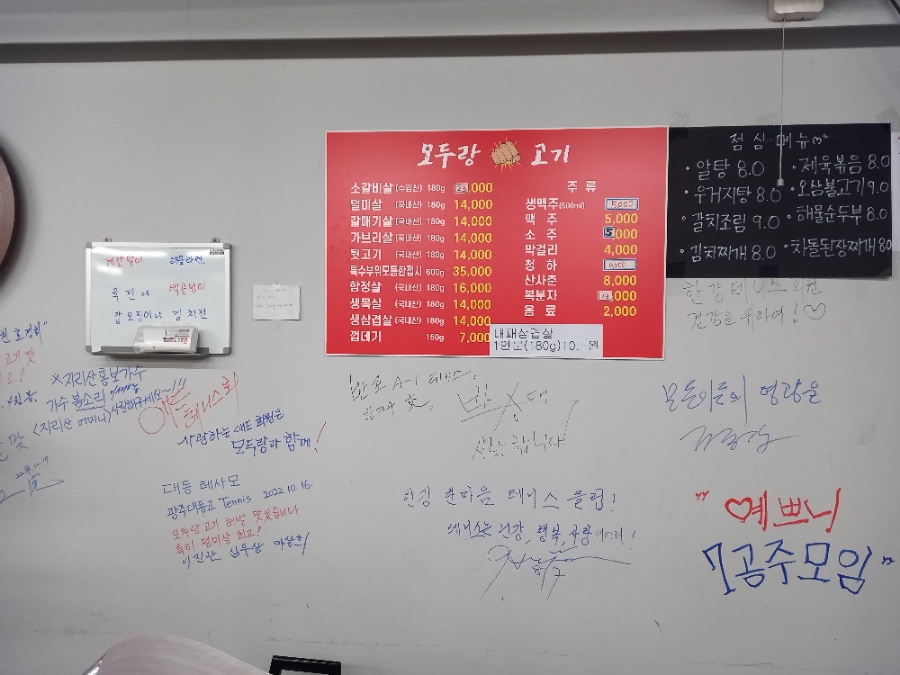 모두랑 고기
소갈비살 (수입산) 180g 23,000
덜미살 (국내산) 180g 14,000
갈매기살 (국내산) 180g 14,000
가브리살 (국내산) 180g 14,000
뒷고기 (국내산) 180g 14,000
특수부위모듬한접시 600g 35,000
항정살 (국내산) 180g 16,000
생목살 (국내산) 180g 14,000
생삼겹살 (국내산) 180g 14,000
껍데기 150g 7,000
주 류
생맥주(500ml) 5,000
맥 주 5,000
소 주 5,000
막걸리 4,000
청 하
산사춘 8,000
복분자 ,000
음 료 2,000
대패삼겹살
1인분(180g)10. 원
점심 메뉴
· 알탕 8.0
· 우거지탕 8.0
· 갈치조림 9.0
· 김치찌개 8.0
· 제육볶음 8.0
· 오삼불고기 9.0
· 해물순두부 8.0
· 차돌된장찌개 8.0
계란말이
해물라면
육전
갑오징어
김치전
한강 테니스 회원
건강을 위하여!♡
※지리산홍보가수
가수 불소리
<지리산 어머니> 사랑해주세요~!!!
테니스회
사랑하는 회원들
모두랑과 함께!
대동 테사모
광주대동고 Tennis 2022.10.16.
모두랑 고기 허벌 맛있습니다
특히 덜미살 최고!
이진만 심우상
A-1 테니스
한강 한마음 테니스 클럽!
테니스는 건강, 행복, 사랑
모든이들의 영광을
"♡예쁘니
7공주모임"